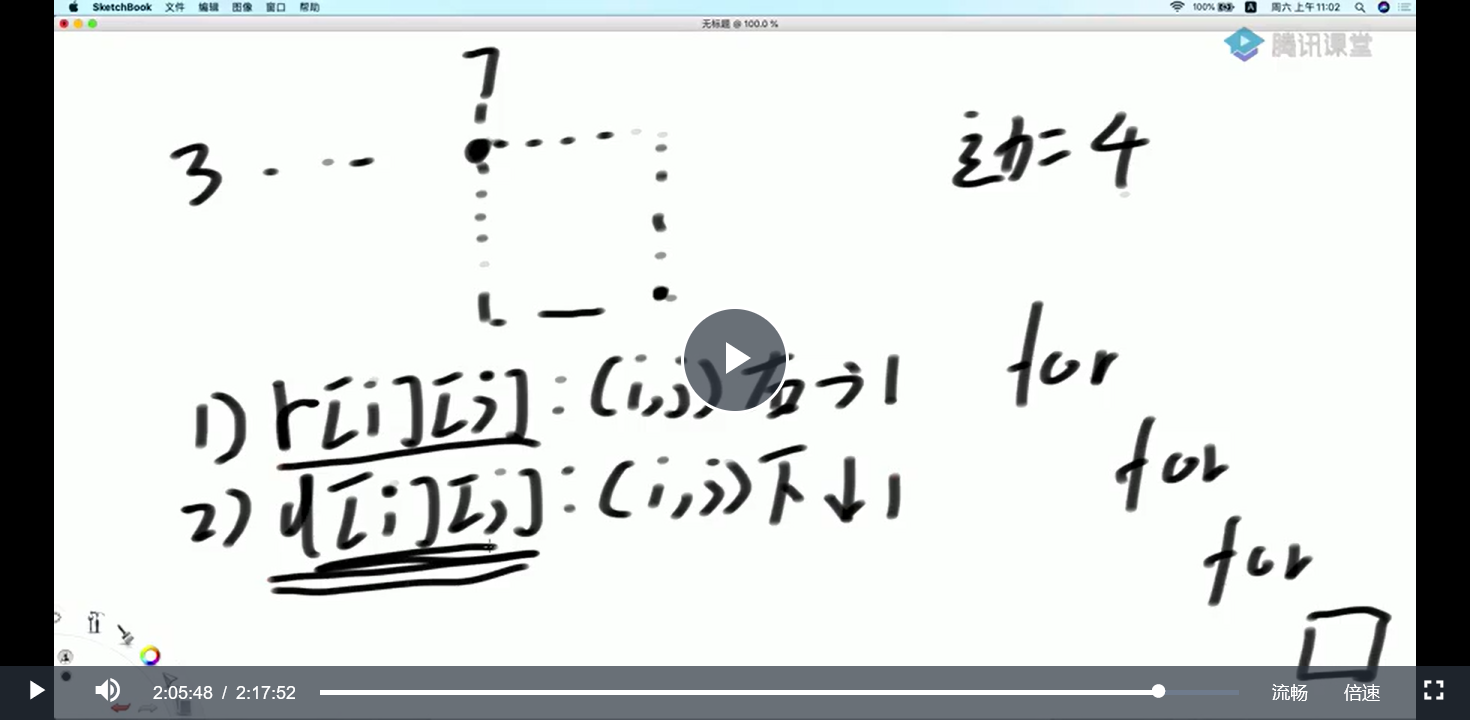 SketchBook 文件 编辑 图像 窗口 帮助 100% A 周六 上午11:02
无标题 @ 100.0 %
腾讯课堂
7
3
边=4
1) r[i][j]:(i,j)右→1
2) d[i][j]:(i,j)下↓1
for
for
for
2:05:48 / 2:17:52 流畅 倍速